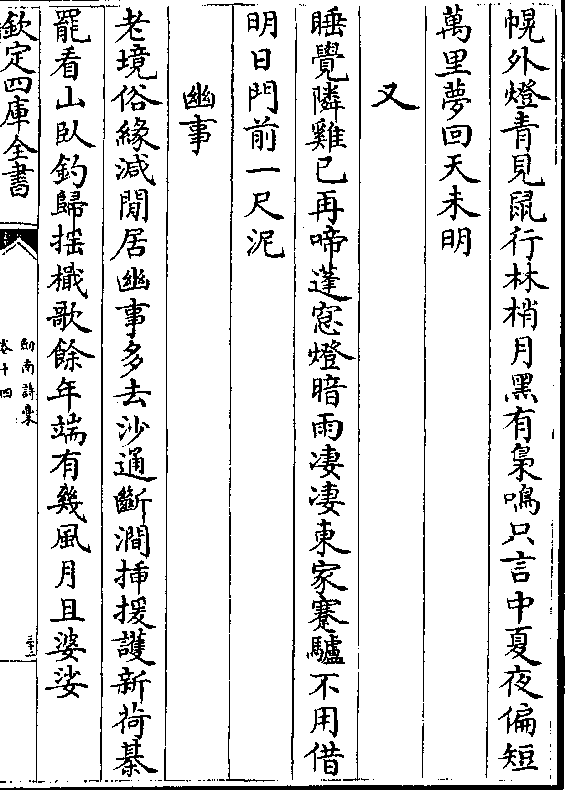 幌外燈青見鼠行林梢月黑有梟鳴只言中夏夜偏短
萬里夢回天未明
又
睡覺隣雞已再啼蓬窓燈暗雨凄凄東家蹇驢不用借
明日門前一尺泥
幽事
老境俗緣減閒居幽事多去沙通斷澗揷援護新荷棊
罷看山臥釣歸揺檝歌餘年端有幾風月且婆娑
欽定四庫全書
劒南詩稾
卷十四